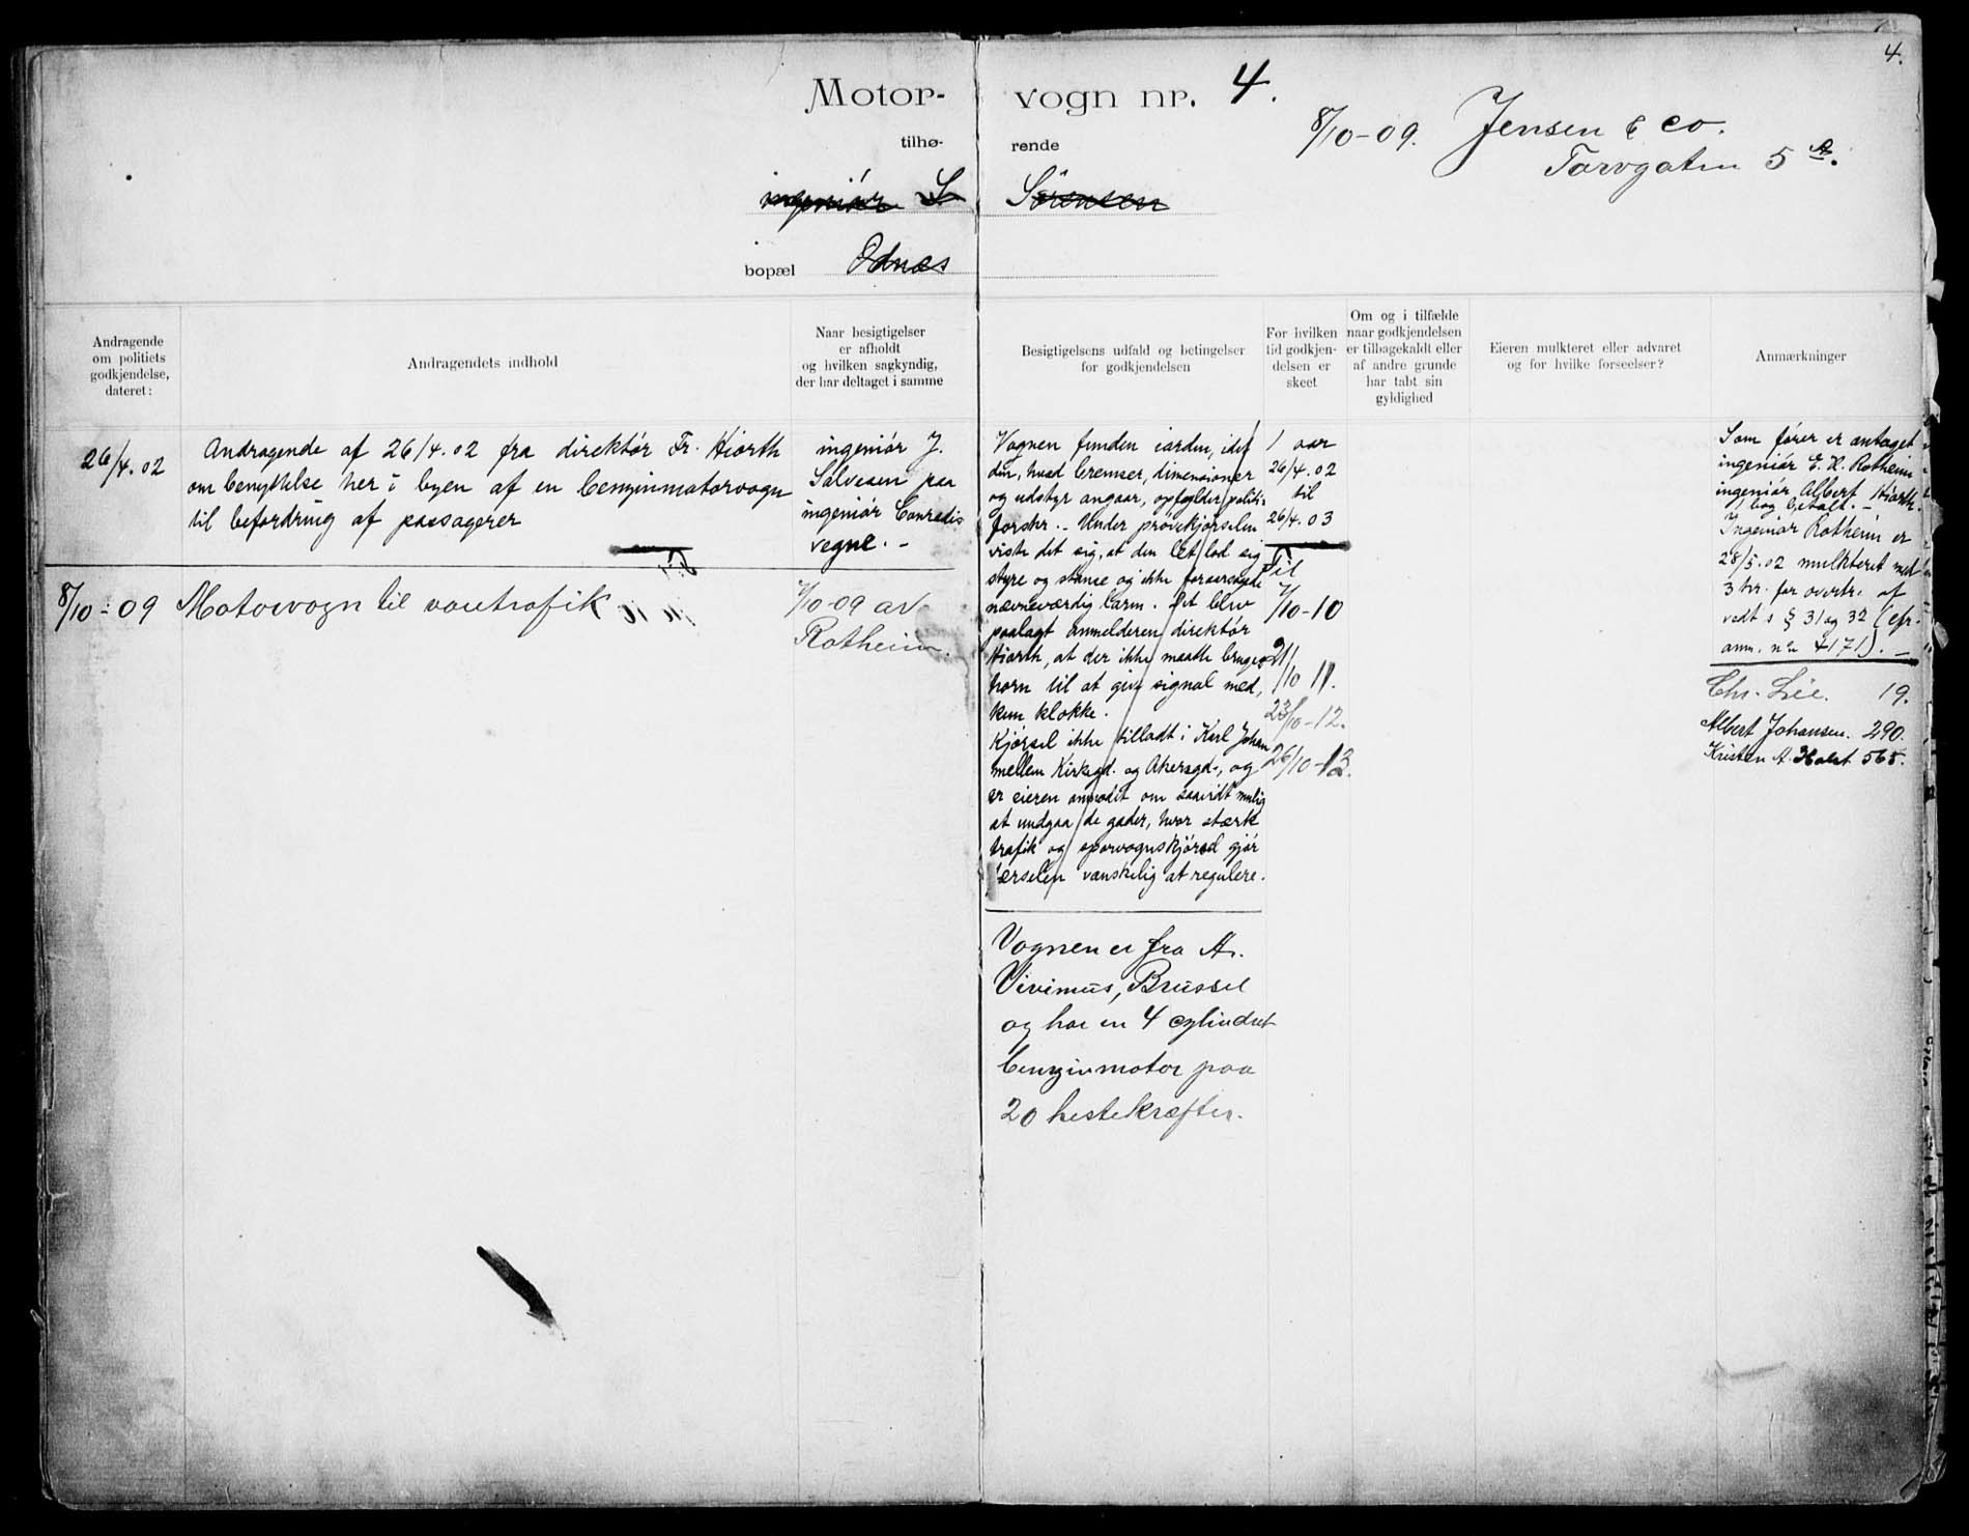 4.
Motor-vogn nr. 4.
tilhørende
ingeniør S Sørensen
bopæl Odnæs
8/10-09. Jensen & co.
Torvgaten 5 A.
Andragende
om politiets
godkjendelse,
dateret:
Andragendets indhold
Naar besigtigelser
er afholdt
og hvilken sagkyndig,
der har deltaget i samme
Besigtigelsens udfald og betingelser
for godkjendelsen
For hvilken
tid godkjen-
delsen er
skeet
Om og i tilfælde
naar godkjendelsen
er tilbagekaldt eller
af andre grunde
har tabt sin
gyldighed
Eieren mulkteret eller advaret
og for hvilke forseelser?
Anmærkninger
26/4.02
Andragende af 26/4.02 fra direktør Fr. Hiorth
om benyttelse her i byen af en benzinmotorvogn
til befordring af passagerer
ingeniør J.
Salvesen paa
ingeniør Conradis
vegne. -
Vognen funden iorden, idet
den, hvad bremser, dimensioner
og udstyr angaar, opfylder politi-
forskr. - Under prøvekjørselen
viste det sig, at den let lod sig
styre og stanse og ikke foraarsagede
nævneværdig larm. Det blev
paalagt anmelderen, direktør
Hiorth, at der ikke maatte bruges
horn til at give signal med,
kun klokke.
Kjørsel ikke tilladt i Karl Johan
mellem Kirkegd. og Akersgd., og
er eieren anmodet om saavidt mulig
at undgaa de gader, hvor stærk
trafik og sporvognskjørsel gjør
færselen vanskelig at regulere.
1 aar
26/4.02
til
26/4.03
Til
7/10-10
21/10 11.
23/10-12.
26/10-13.
Som fører er antaget
ingeniør E. H. Rotheim
ingeniør Albert Hiorth.
bog betalt. -
Ingeniør Rotheim er
28/5.02 mulkteret med
3 kr. for overtr. af
vedt s § 31 og 32 (cfr.
anm. nr 4171). -
Chr. Lie. 19.
Albert Johansen. 290.
Kristen A. Holst 565.
8/10-09 Motorvogn til varetrafik
7/10-09 av
Rotheim.
Vognen er fra A.
Vivimus, Brüssel
og har en 4 cylindret
benzinmotor paa
20 hestekræfter.